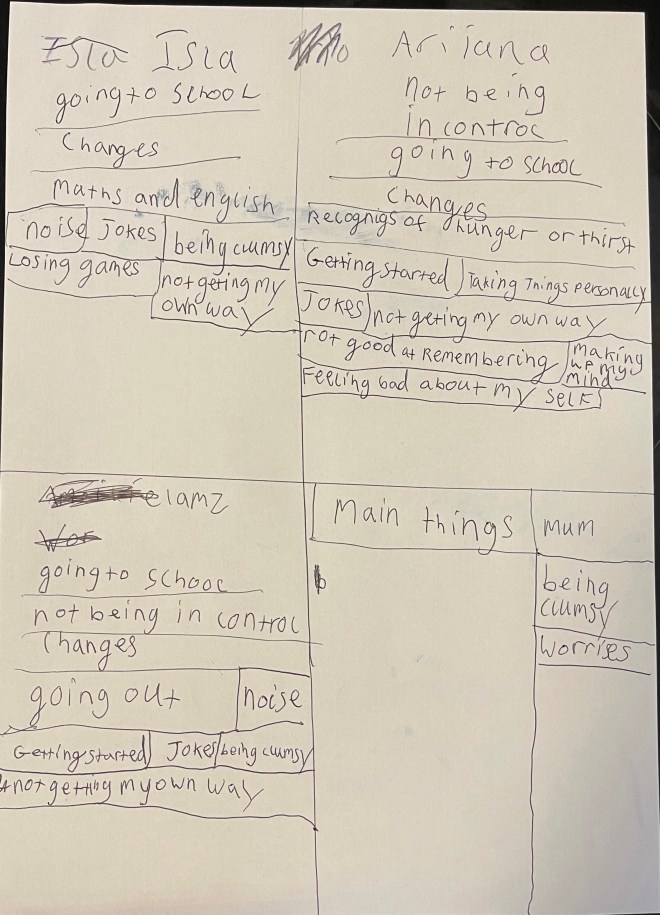 Isla Isla
going to School
Changes
Maths and english
noise Jokes being clumsy
Losing games not geting my
own way
Arijana
Not being
in control
going to School
Changes
Recognigs of hunger or thirst
Getting started Taking Things personally
Jokes not geting my own way
not good at Remembering making
up my
mind
Feeling bad about my self
elamz
going to School
not being in control
Changes
going out noise
Getting started Jokes being clumsy
not getting my own way
Main things mum
being
clumsy
Worries